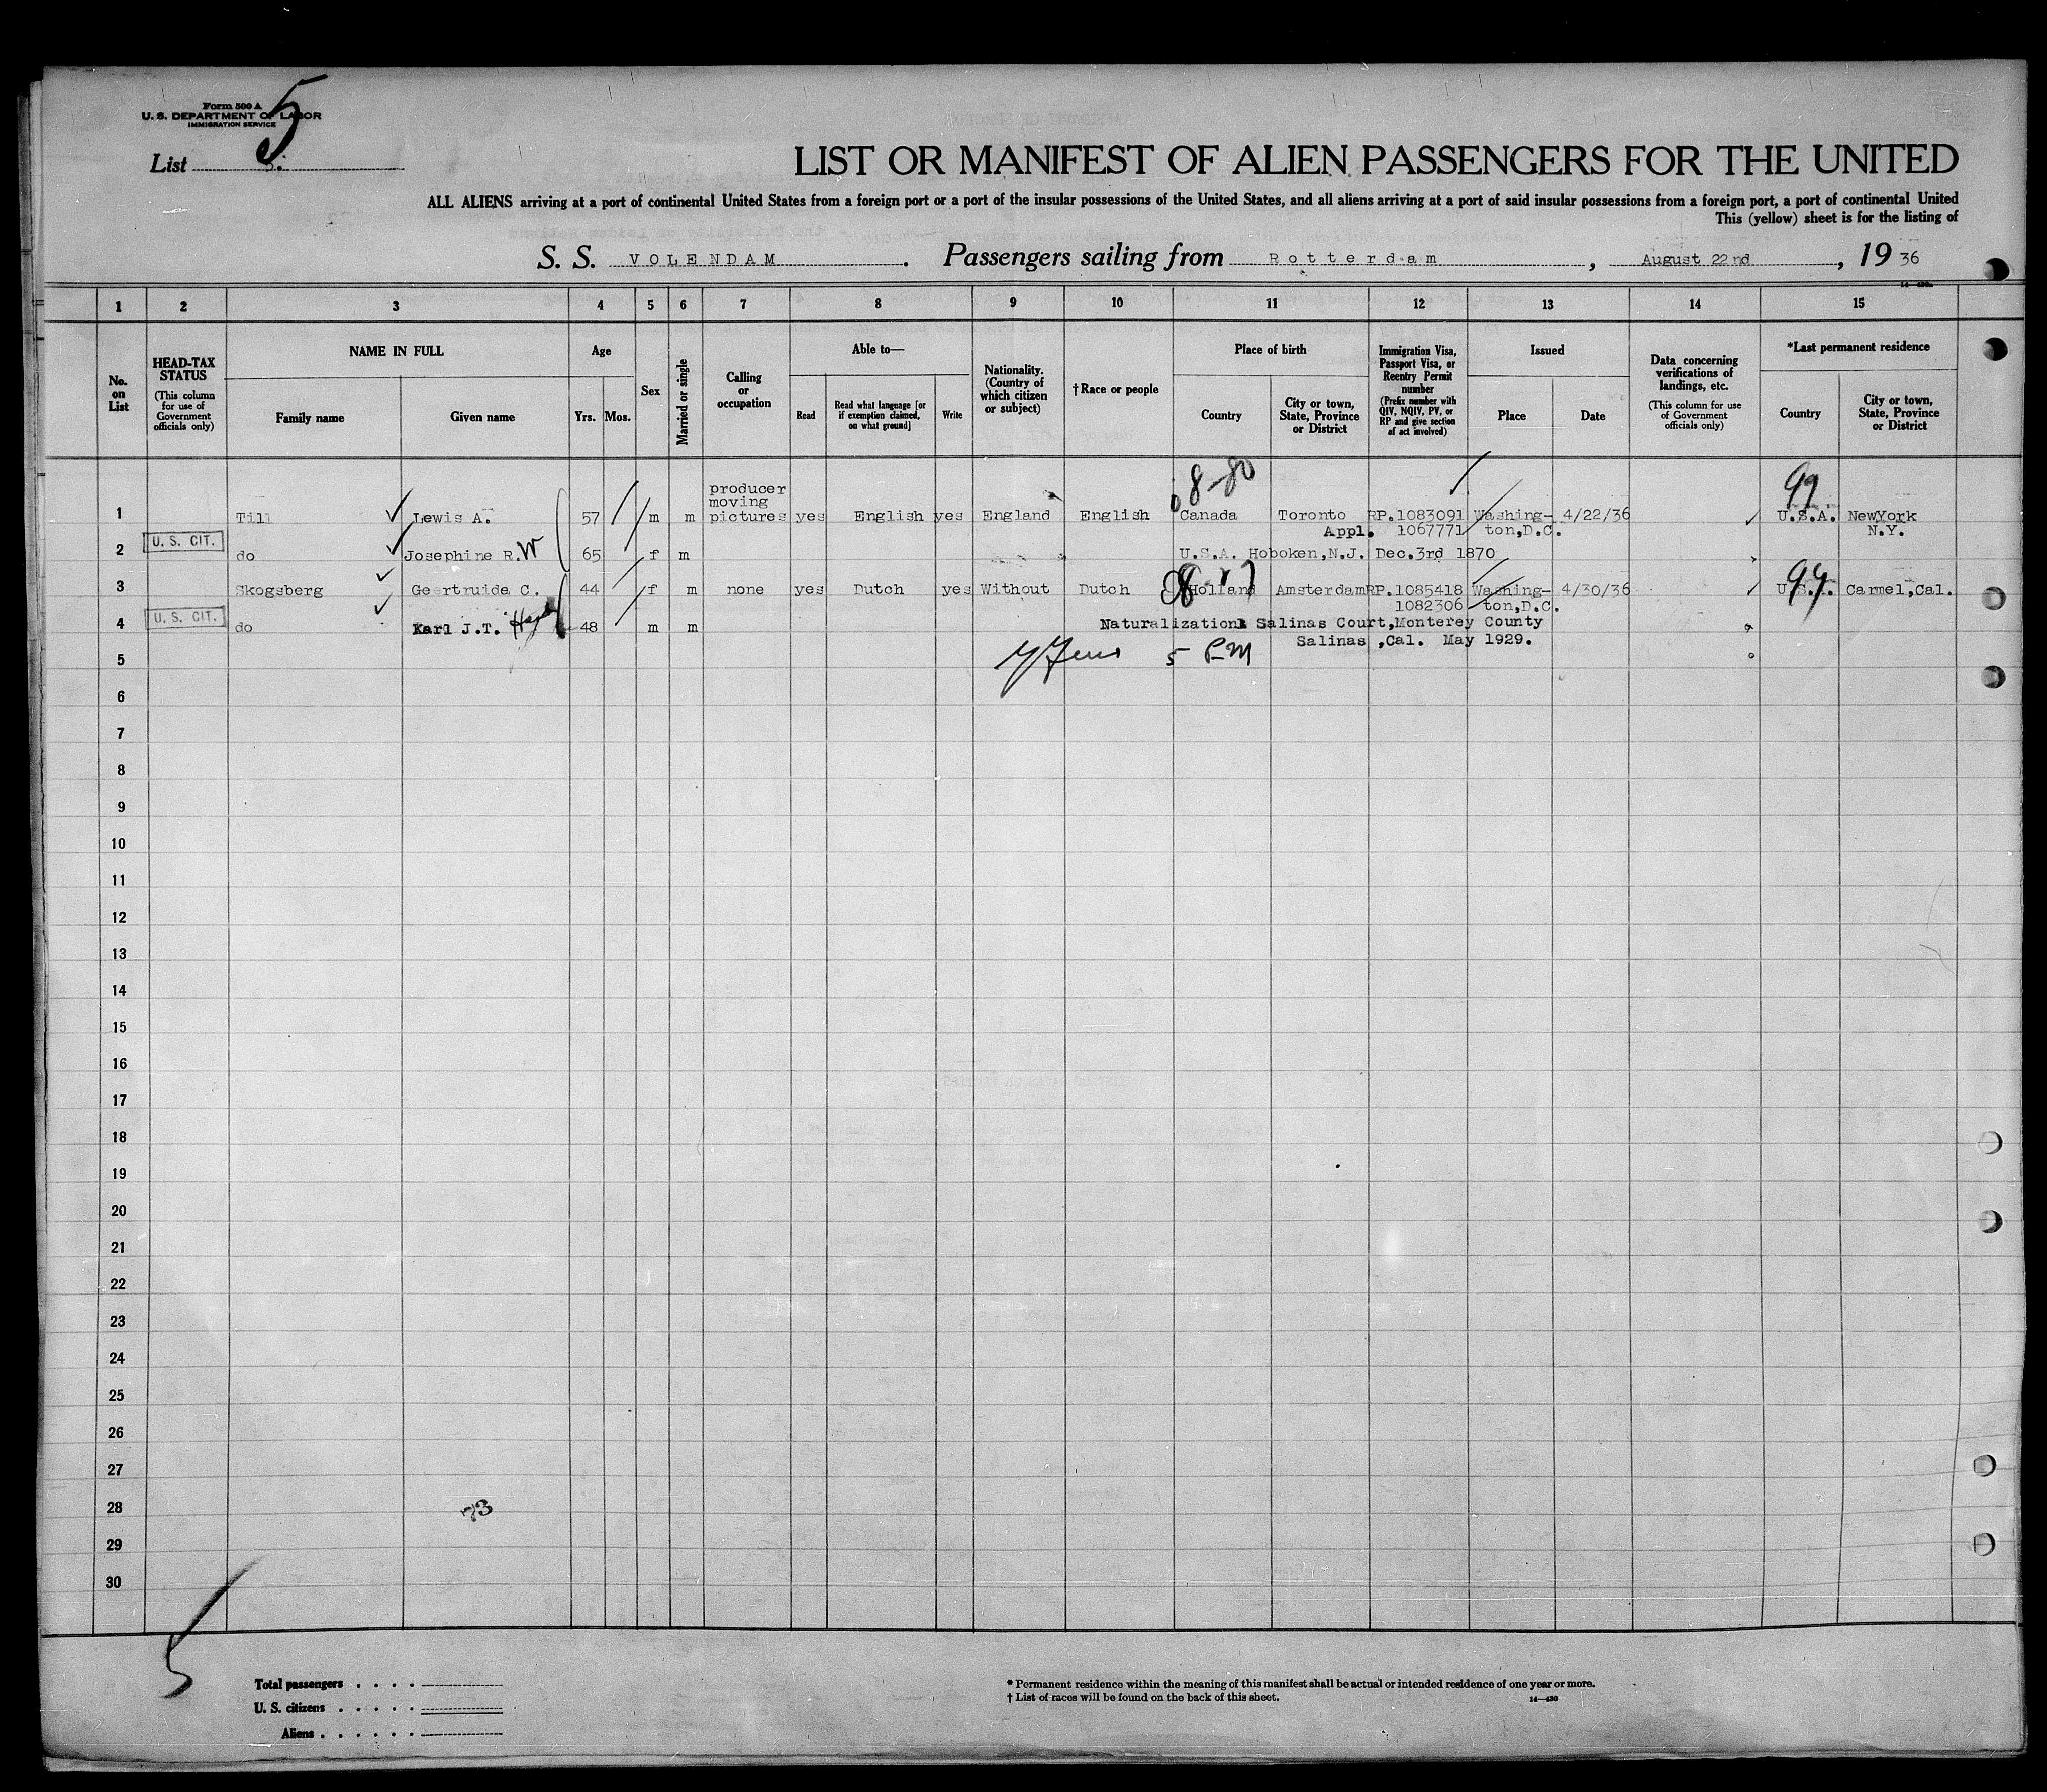 Form 500 A
U. S. DEPARTMENT OF LABOR
IMMIGRATION SERVICE
5
List 5.
LIST OR MANIFEST OF ALIEN PASSENGERS FOR THE UNITED
ALL ALIENS arriving at a port of continental United States from a foreign port or a port of the insular possessions of the United States, and all aliens arriving at a port of said insular possessions from a foreign port, a port of continental United
This (yellow) sheet is for the listing of
S. S. VOLENDAM. Passengers sailing from Rotterdam, August 22nd, 1936
14-430
1 2 3 4 5 6 7 8 9 10 11 12 13 14 15
No. on List
HEAD-TAX STATUS
(This column for use of Government officials only)
NAME IN FULL
Family name
Given name
Age
Yrs. Mos.
Sex
Married or single
Calling or occupation
Able to—
Read
Read what language [or if exemption claimed, on what ground]
Write
Nationality. (Country of which citizen or subject)
† Race or people
Place of birth
Country
City or town, State, Province or District
Immigration Visa, Passport Visa, or Reentry Permit number
(Prefix number with QIV, NQIV, PV, or RP and give section of act involved)
Issued
Place
Date
Data concerning verifications of landings, etc.
(This column for use of Government officials only)
*Last permanent residence
Country
City or town, State, Province or District
8-80
99
producer
moving
1 Till Lewis A. 57 m m pictures yes English yes England English Canada Toronto RP.1083091 Washing- 4/22/36 U.S.A. NewYork
Appl. 1067771 ton,D.C. N.Y.
U. S. CIT.
2 do Josephine R. W 65 f m U.S.A. Hoboken,N.J. Dec.3rd 1870
3 Skogsberg Geertruida C. 44 f m none yes Dutch yes Without Dutch Holland Amsterdam RP.1085418 Washing- 4/30/36 U.S.A. Carmel,Cal.
99
1082306 ton,D.C.
U. S. CIT.
4 do Karl J.T. 48 m m Naturalization Salinas Court,Monterey County
Salinas ,Cal. May 1929.
5 PM
5
6
7
8
9
10
11
12
13
14
15
16
17
18
19
20
21
22
23
24
25
26
27
28
73
29
30
5
Total passengers . . . .
U. S. citizens . . . . .
Aliens . . . . . .
* Permanent residence within the meaning of this manifest shall be actual or intended residence of one year or more.
† List of races will be found on the back of this sheet.
14—430